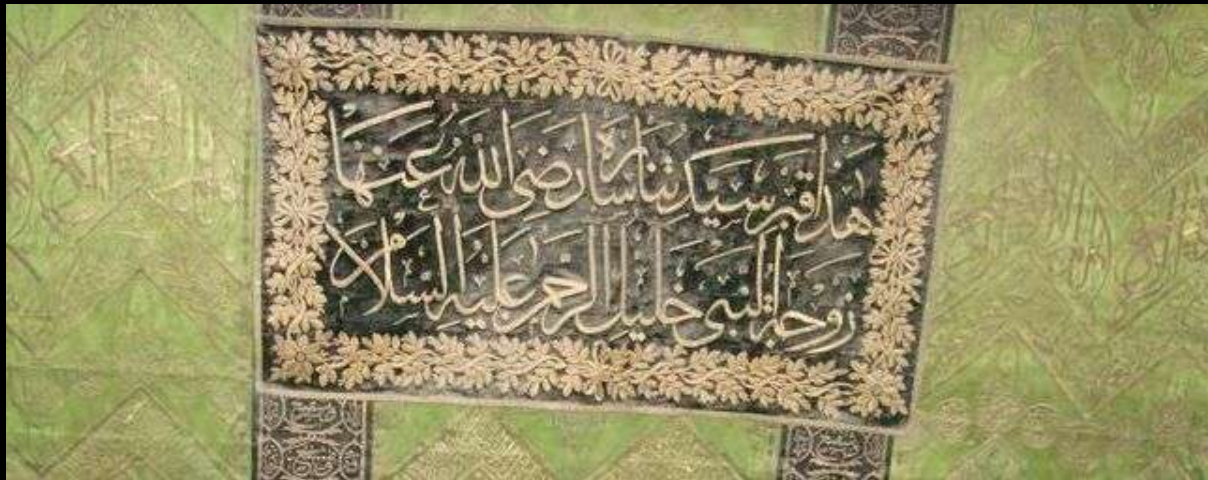 هذا قبر سيدتنا سارة رضي الله عنها
زوجة النبي خليل الرحمن عليه السلام